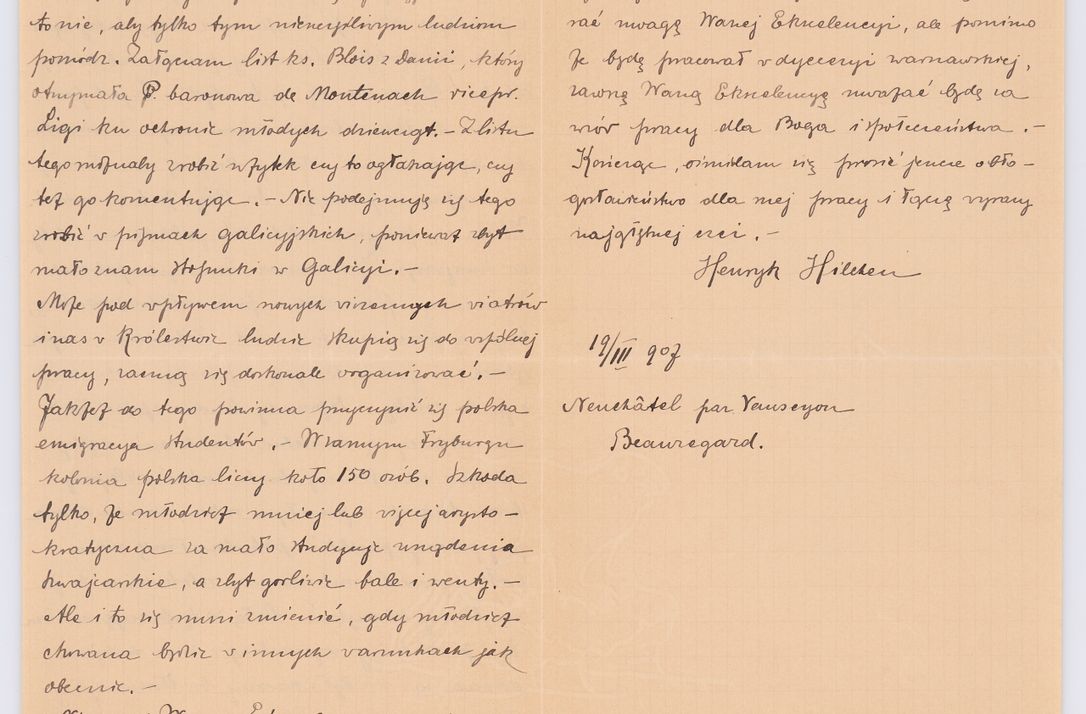 to nie, aby tylko tym nieszczęśliwym ludziom
pomódz. Załączam list ks. Blois z Danii, który
otrzymała P. baronowa de Montenach vicepr.
Ligi ku ochronie młodych dziewcząt. – Z listu
tego możnaby zrobić użytek czy to ogłaszając, czy
też go komentując. – Nie podejmuję się tego
zrobić w pismach galicyjskich, ponieważ zbyt
mało znam stosunki w Galicyi. –
Może pod wpływem nowych wiosennych wiatrów
i nas w Królestwie ludzie skupią się do wspólnej
pracy, zaczną się doskonale organizować. –
Także do tego powinna przyczynić się polska
emigracya studentów. – W samym Fryburgu
kolonia polska liczy koło 150 osób. Szkoda
tylko, że młodzież mniej lub więcej arysto –
kratyczna za mało studyuje urządzenia
szwajcarskie, a zbyt gorliwie bale i wenty. –
Ale i to się musi zmienić, gdy młodzież
chowana będzie w innych warunkach jak
obecnie. –
rać uwagę Waszej Ekscelencyi, ale pomimo
że będę pracował w dyecezyi warszawskiej,
zawsze Waszą Ekscelencyę uważać będę za
wzór pracy dla Boga i społeczeństwa. –
Kończąc, ośmielam się prosić jeszcze o bło –
gosławieństwo dla mej pracy i łączę wyrazy
najgłębszej czci. –
Henryk Hilchen
19/III 907
Neuchâtel par Vauseyon
Beauregard.